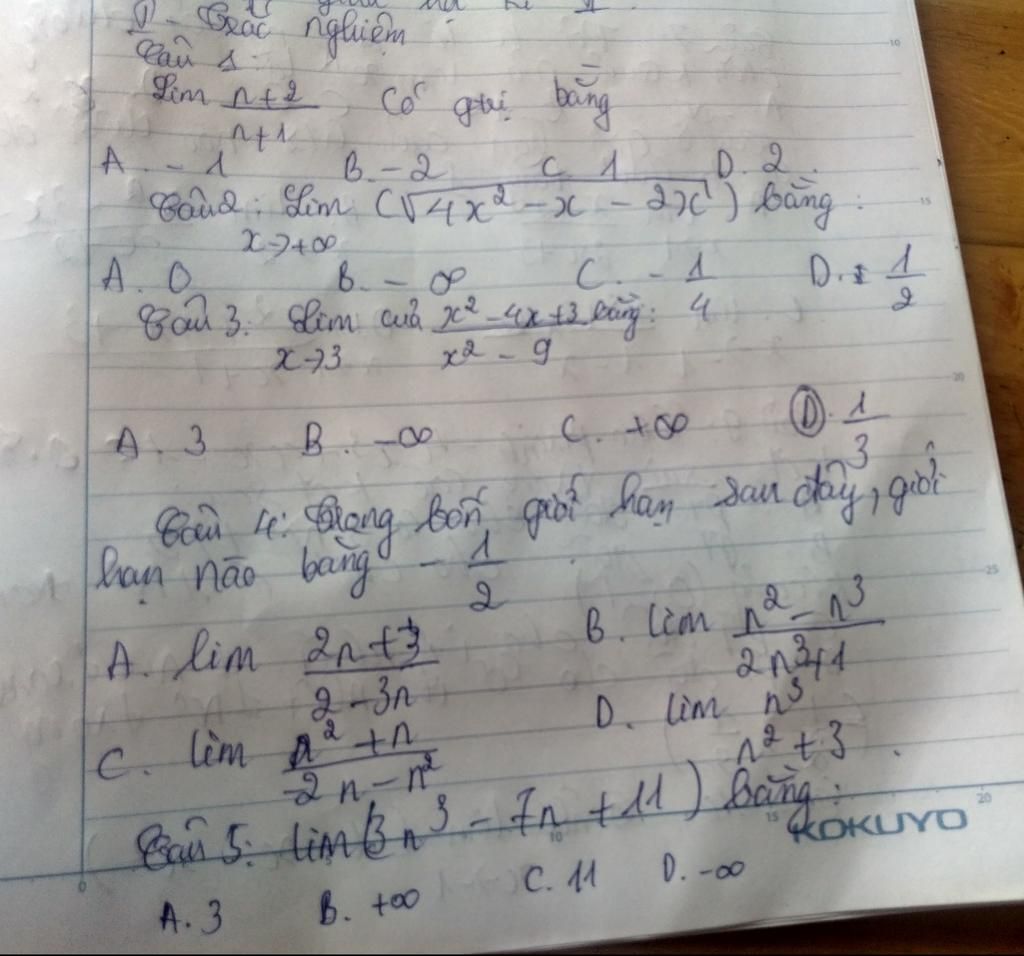 I - Trắc nghiệm
Câu 1:
Lim \frac{n+2}{n+1} Có gtri bằng
A. -1 B. -2 C. 1 D. 2.
Câu 2: Lim (\sqrt{4x^2 - x - 2x}) bằng:
x→+∞
A. 0 B. -∞ C. -\frac{1}{4} D. \frac{1}{2}
Câu 3: Lim của \frac{x^2-4x+3}{x^2-9} bằng:
x→3
A. 3 B. -∞ C. +∞ D. \frac{1}{3}
Câu 4: Trong bốn giới hạn sau đây, giới
hạn nào bằng -\frac{1}{2}
A. lim \frac{2n+3}{2-3n} B. lim \frac{n^2-n^3}{2n^3+1}
C. lim \frac{n^2+n}{-2n-n^2} D. lim \frac{n^3}{n^2+3}.
Câu 5: lim(3n^3 - 7n + 11) bằng:
A. 3 B. +∞ C. 11 D. -∞
KOKUYO